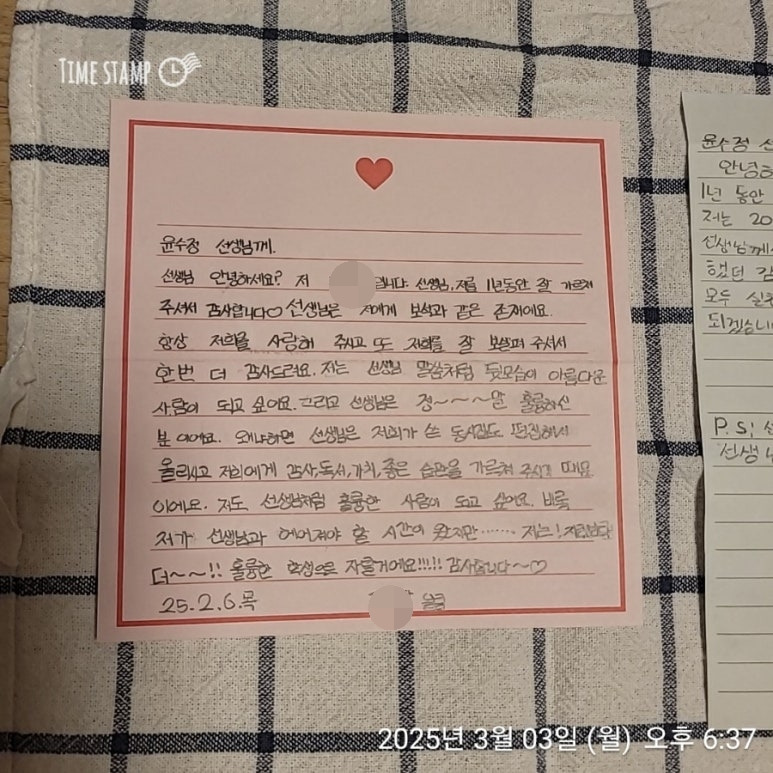 TIME STAMP
윤수정 선생님께.
선생님 안녕하세요? 저 입니다. 선생님, 저를 1년동안 잘 가르쳐
주셔서 감사합니다♡ 선생님은 저에게 보석과 같은 존재에요.
항상 저희를 사랑해 주시고 또 저희를 잘 보살펴 주셔서
한번 더 감사드려요. 저는 선생님 말씀처럼 뒷모습이 아름다운
사람이 되고 싶어요. 그리고 선생님은 정~~~말 훌륭하신
분이에요. 왜냐하면 선생님은 저희가 쓴 동시집도 편집해서
올리시고 저희에게 감사, 독서, 가치, 좋은 습관을 가르쳐 주시기 때문
이에요. 저도 선생님처럼 훌륭한 사람이 되고 싶어요. 비록
제가 선생님과 헤어져야 할 시간이 왔지만…… 저는! 지금보다
더~~!! 훌륭한 학생으로 자랄거에요!!!!! 감사합니다~♡
25.2.6.목 올림
윤수정 선
안녕하
1년 동안
저는 20
선생님께
했던 감
모두 실
되겠습니
P.S; 선
선생님
2025년 3월 03일 (월) 오후 6:37